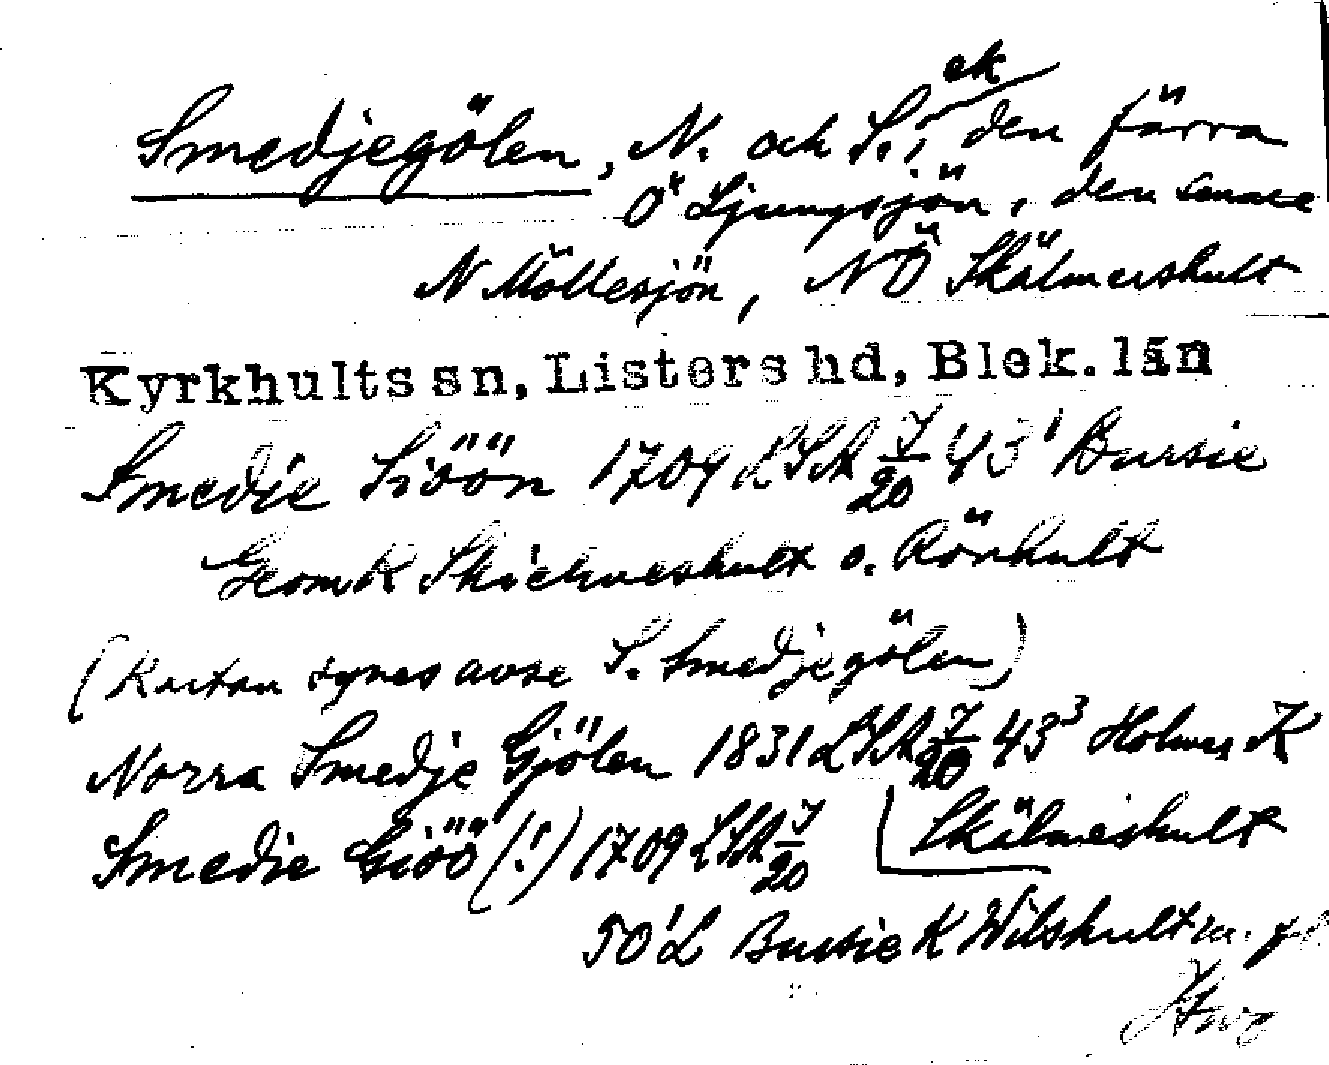 Smedjegölen, N. och S.; ek den förra
Ö Ljungsjön, den senare
N Möllesjön, NÖ Skälmershult
Kyrkhults sn, Listers hd, Blek. län
Smedie Siöön 1709 LSA 7/20 43¹ Bursie
GeomK Skielmeshult o. Rönhult
(Kartan synes avse S. Smedjegölen)
Norra Smedje Gjölen 1831 LSA 7/20 43³ Holmes K
Skälmeshult
Smedie Giöö (!) 1709 LSA 7/20
50¹L Bursie K Wilshult m. fl.